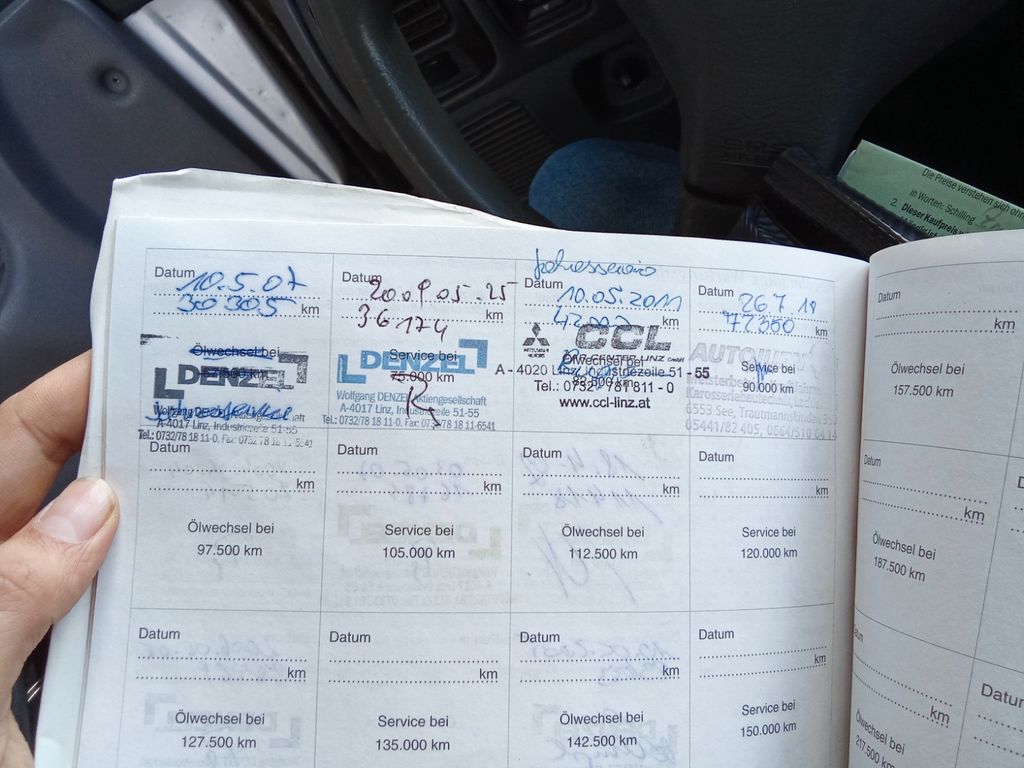 Die Preise verstehen sich ohne
in Worten: Schilling
2. Dieser Kaufpreis
Datum 10.5.07
30305 km
Ölwechsel bei
DENZEL
Jahresservice
Wolfgang DENZEL Aktiengesellschaft
A-4017 Linz, Industriezeile 51-55
Tel.: 0732/78 18 11-0, Fax: 0732/78 18 11-6541
Datum 2009.05.25
36174 km
Service bei
DENZEL
75.000 km
Wolfgang DENZEL Aktiengesellschaft
A-4017 Linz, Industriezeile 51-55
Tel.: 0732/78 18 11-0, Fax: 0732/78 18 11-6541
Jahresservice
Datum 10.05.2011
km
MITSUBISHI MOTORS CCL
CAR CENTER LINZ GmbH
Ölwechsel bei
A - 4020 Linz, Industriezeile 51 - 55
Tel.: 0732 - 781 811 - 0
www.ccl-linz.at
Datum 26.7.19
km
Service bei
90.000 km
Karosseriebautechnik,
6553 See, Trautmannskinden
05441/82 405, 0664/510
Datum
km
Ölwechsel bei
97.500 km
Datum
km
Service bei
105.000 km
Datum
km
Ölwechsel bei
112.500 km
Datum
km
Service bei
120.000 km
Datum
km
Ölwechsel bei
127.500 km
Datum
km
Service bei
135.000 km
Datum
km
Ölwechsel bei
142.500 km
Datum
km
Service bei
150.000 km
Datum
km
Ölwechsel bei
157.500 km
Datum
km
Ölwechsel bei
187.500 km
km
Ölwechsel bei
217.500 km
Datum